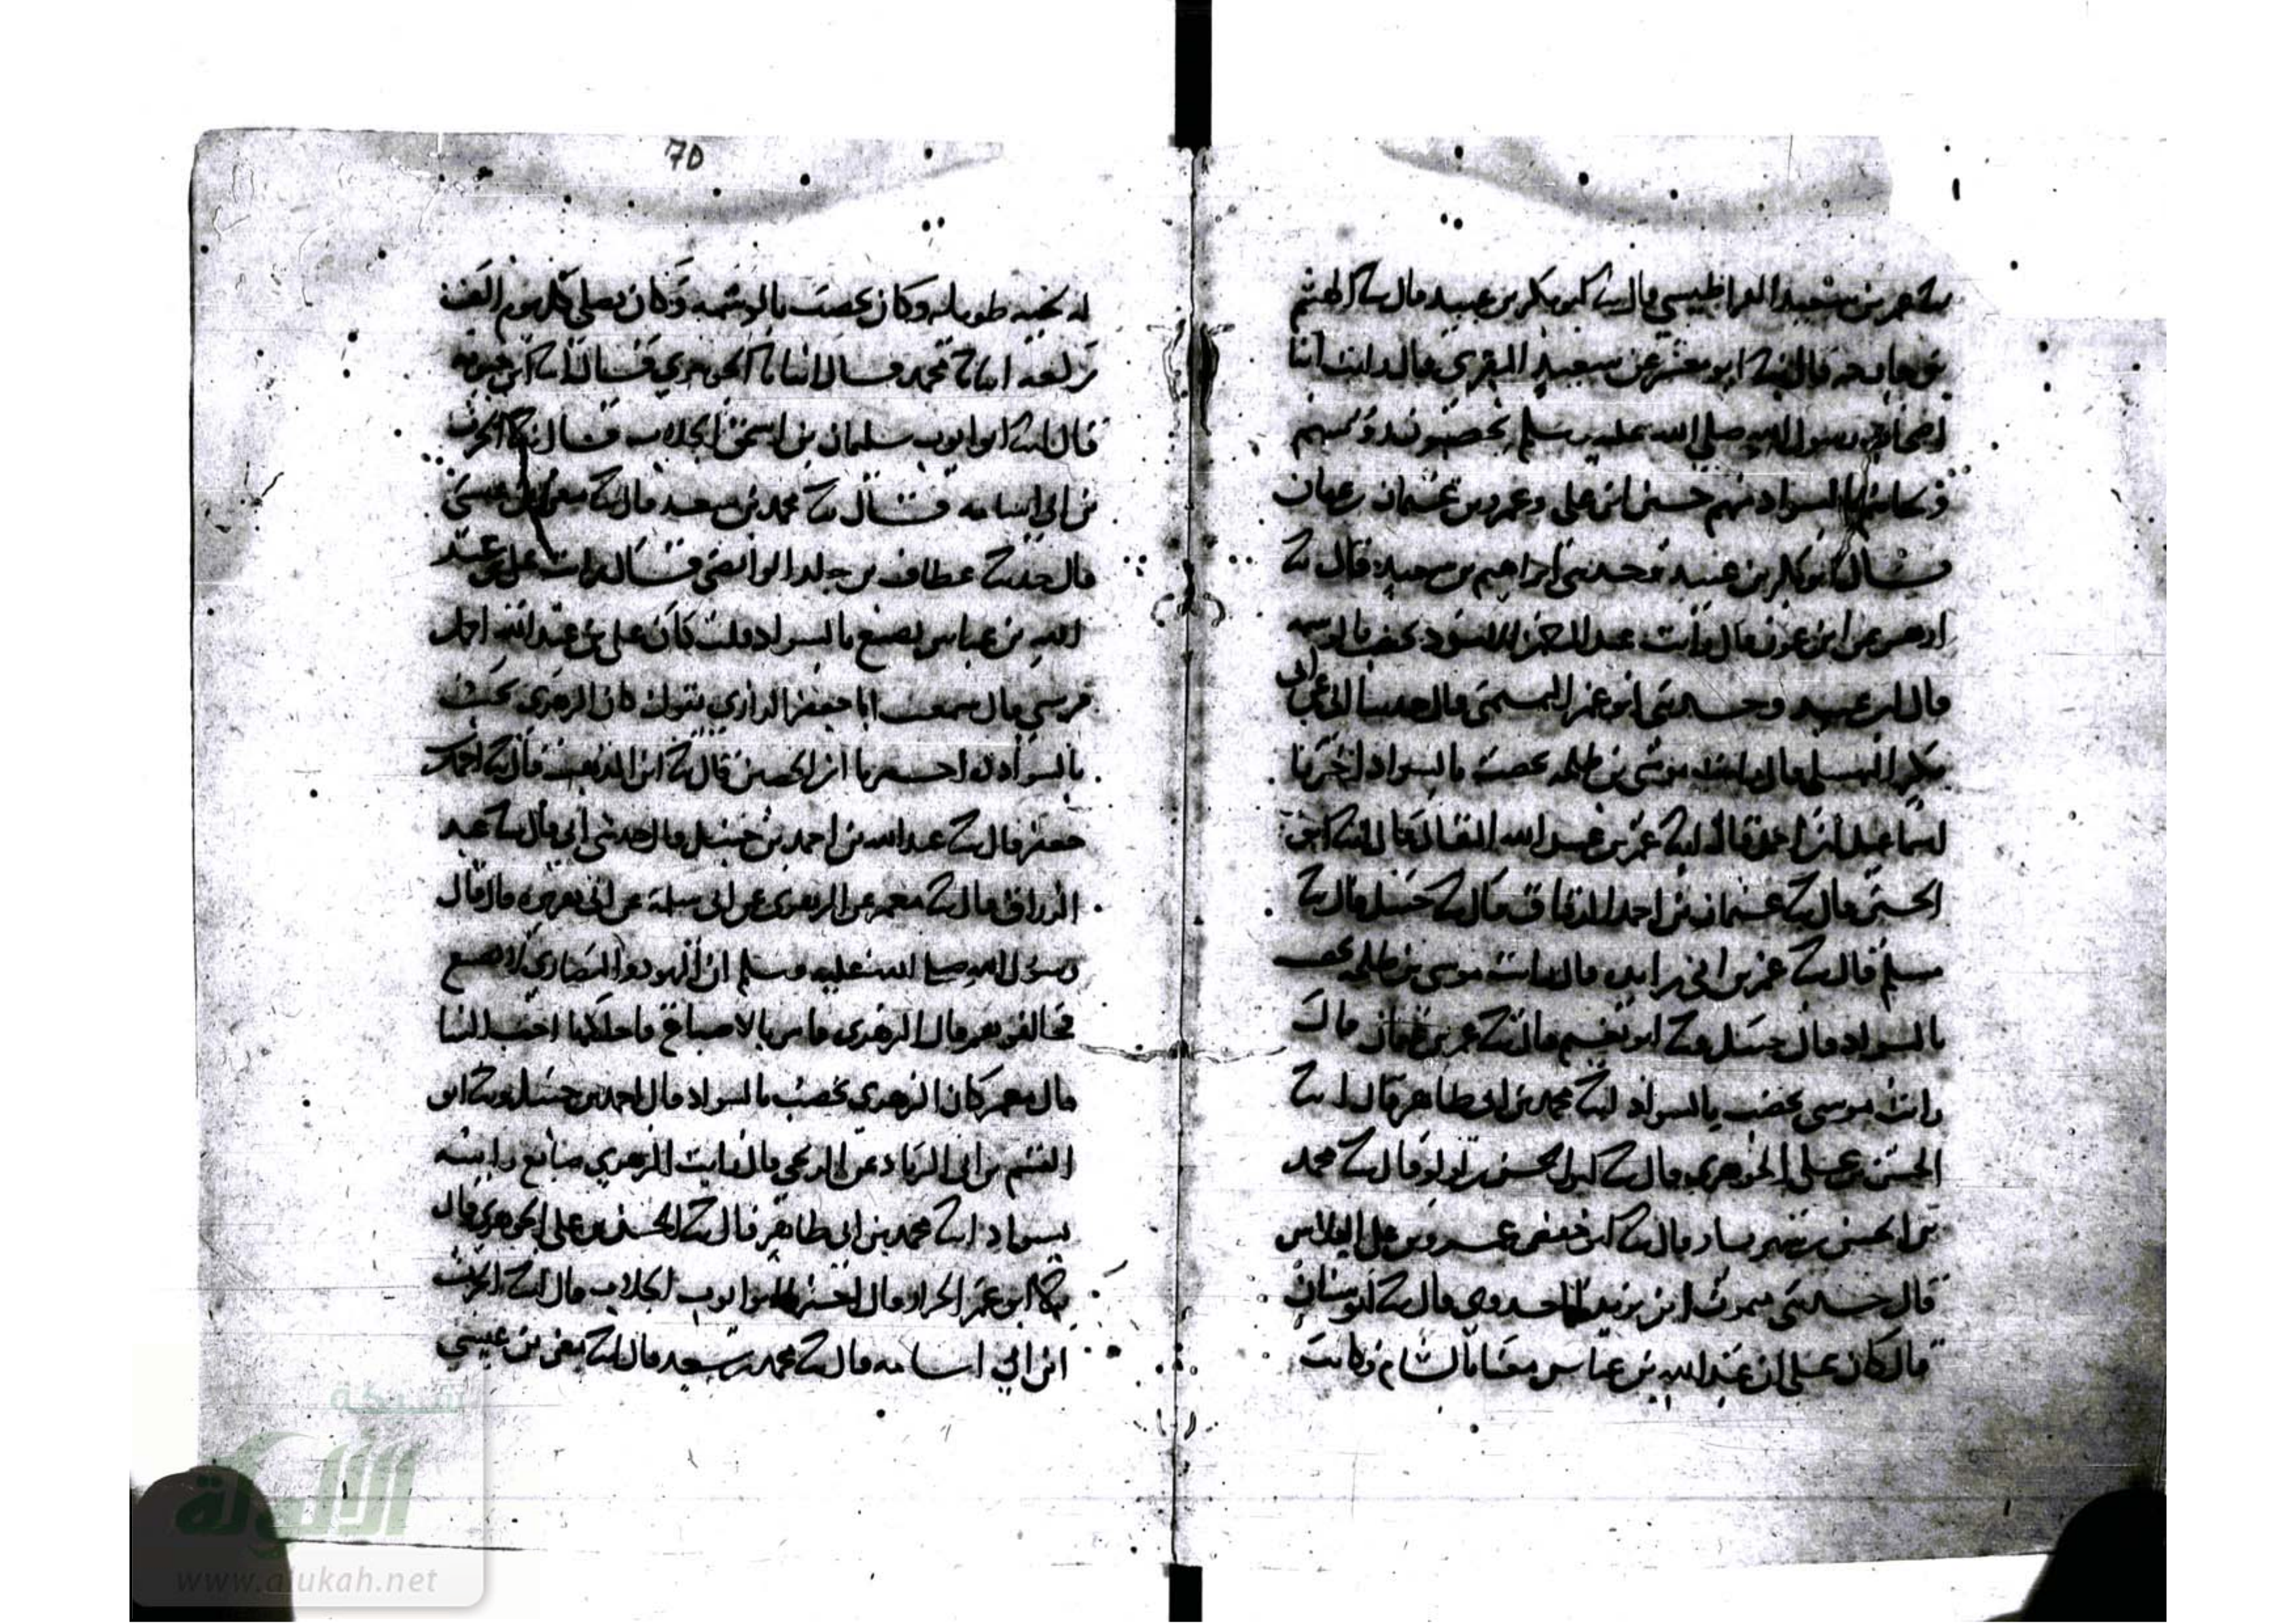 عمر بن سعيد القراطيسي قال ثنا ابو بكر بن عبيد قال ثنا الهيثم
بن خارجه قال ثنا ابو معشر عن سعيد المقبري قال رايت ابنا
اصحاب رسول الله صلي الله عليه وسلم يخضبون
بالسواد منهم حسين ابن علي وعمرو بن عثمان
قال ابو بكر بن عبيد وحدثني ابراهيم بن سعيد قال ثنا
ازهر عن ابن عون قال رايت عبد الله الاسود يخضب بالوسمه
قال ابن عبيد وحدثني ابو عمر التميمي قال حدثنا ابي عن ابي
بكر النهشلي قال رايت موسى بن طلحه يخضب بالسواد اخبرنا
اسماعيل ابن احمد قال ثنا عمر بن عبيد الله البقال قال ثنا ابو
الحسين قال ثنا عثمان بن احمد الدقاق قال ثنا حنبل قال ثنا
مسلم قال ثنا عمر بن ابي زايده قال رايت موسى بن طلحه يخضب
بالسواد قال حنبل وثنا ابو نعيم قال ثنا عمر بن قال
رايت موسى يخضب بالسواد ثنا محمد بن ابي طاهر قال ثنا
الحسن بن علي الجوهري قال ثنا ابو الحسن بن لولو قال ثنا محمد
بن الحسين بن شهريار قال ثنا ابو حفص عمرو بن علي الفلاس
قال حدثني ابن يزيد قال ثنا ابو سنان
قال كان علي ابن عبد الله بن عباس معنا بالشام وكانت
70
له لحيه طويله وكان يخضب بالوسمه وكان يصلي كل يوم الف
ركعه انبانا محمد قال انبانا الجوهري قال ثنا ابن حيويه
قال ثنا ابو ايوب سليمان بن اسحق الجلاب قال ثنا الحرث
بن ابي اسامه قال ثنا محمد بن سعد قال ثنا معن بن عيسى
قال حدثنا عطاف بن خالد الوابصي قال رايت علي بن عبد
الله بن عباس يصبغ بالسواد قلت كان علي بن عبد الله احد
قال سمعت ابا جعفر الرازي يقول كان الزهري يخضب
بالسواد اخبرنا ابن الحصين قال ثنا ابن المذهب قال ثنا احمد
جعفر قال ثنا عبد الله بن احمد بن حنبل قال حدثني ابي قال ثنا عبد
الرزاق قال ثنا معمر عن الزهري عن ابي سلمة عن ابي هريره قال قال
رسول الله صلى الله عليه وسلم ان اليهود والنصاري لا تصبغ
فخالفوهم قال الزهري فامر بالاصباغ فاحلكها احب الينا
قال معمر كان الزهري يخضب بالسواد قال احمد بن حنبل وثنا ابو
القسم بن ابي الزناد عن قال رايت الزهري صابغ راسه
بسواد ثنا محمد بن ابي طاهر قال ثنا الحسن بن علي الجوهري قال
ثنا ابو عمر الخراز قال اخبرنا ابو ايوب الجلاب قال ثنا الحرث
ابن ابي اسامه قال ثنا محمد بن سعد قال ثنا معن بن عيسي
شبكة
الألوكة
www.alukah.net